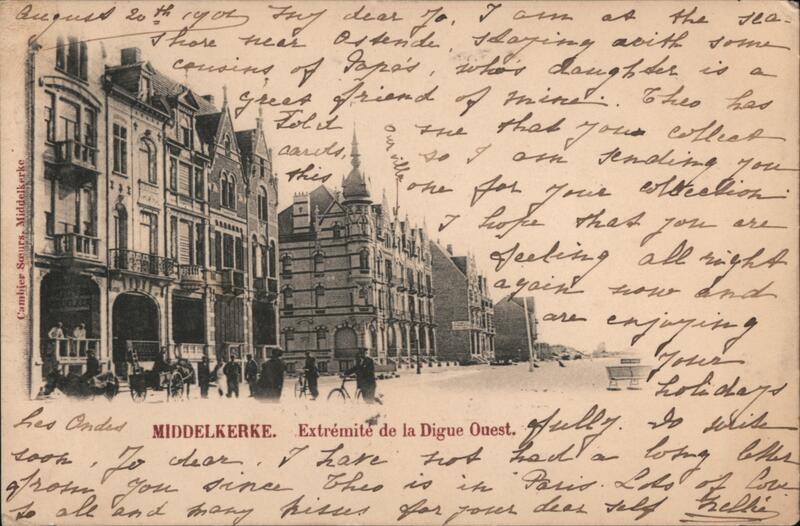 August 20th 1901 My dear Jo, I am at the sea-
shore near Ostende, staying with some
cousins of Papa's, who's daughter is a
great friend of mine. Theo has
Told me that you collect
cards, so I am sending you
this one for your collection.
I hope that you are
feeling all right
again now and
are enjoying
your
holidays
fully. Do write
soon, Jo dear, I have not had a long letter
from you since Theo is in Paris. Lots of love
to all and many kisses for your dear self Nellie
our villa
Les Ondes
Cambier Sœurs, Middelkerke
MIDDELKERKE. Extrémité de la Digue Ouest.